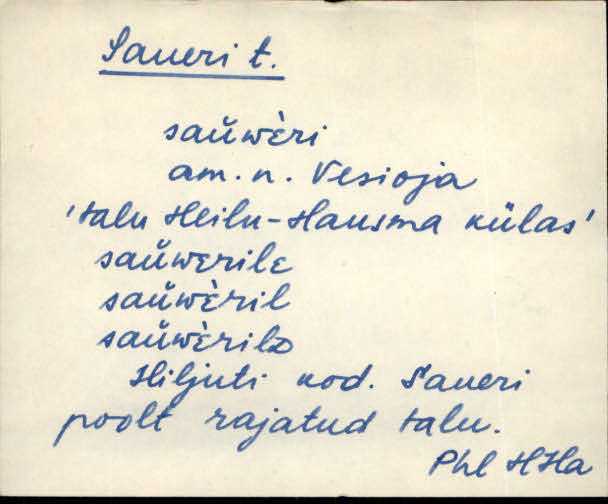 Saueri t.
saŭwèri
am. n. Vesioja
'talu Heilu-Hausma külas'
saŭwerile
saŭwèril
saŭwèrilᴅ
Hiljuti kod. Saueri
poolt rajatud talu.
Phl HHa